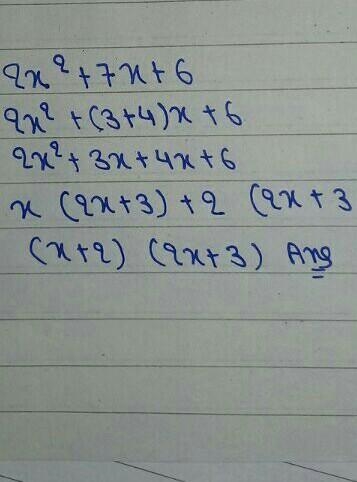 2x² + 7x + 6
2x² + (3+4)x + 6
2x² + 3x + 4x + 6
x (2x+3) + 2 (2x + 3
(x+2) (2x+3) Ans